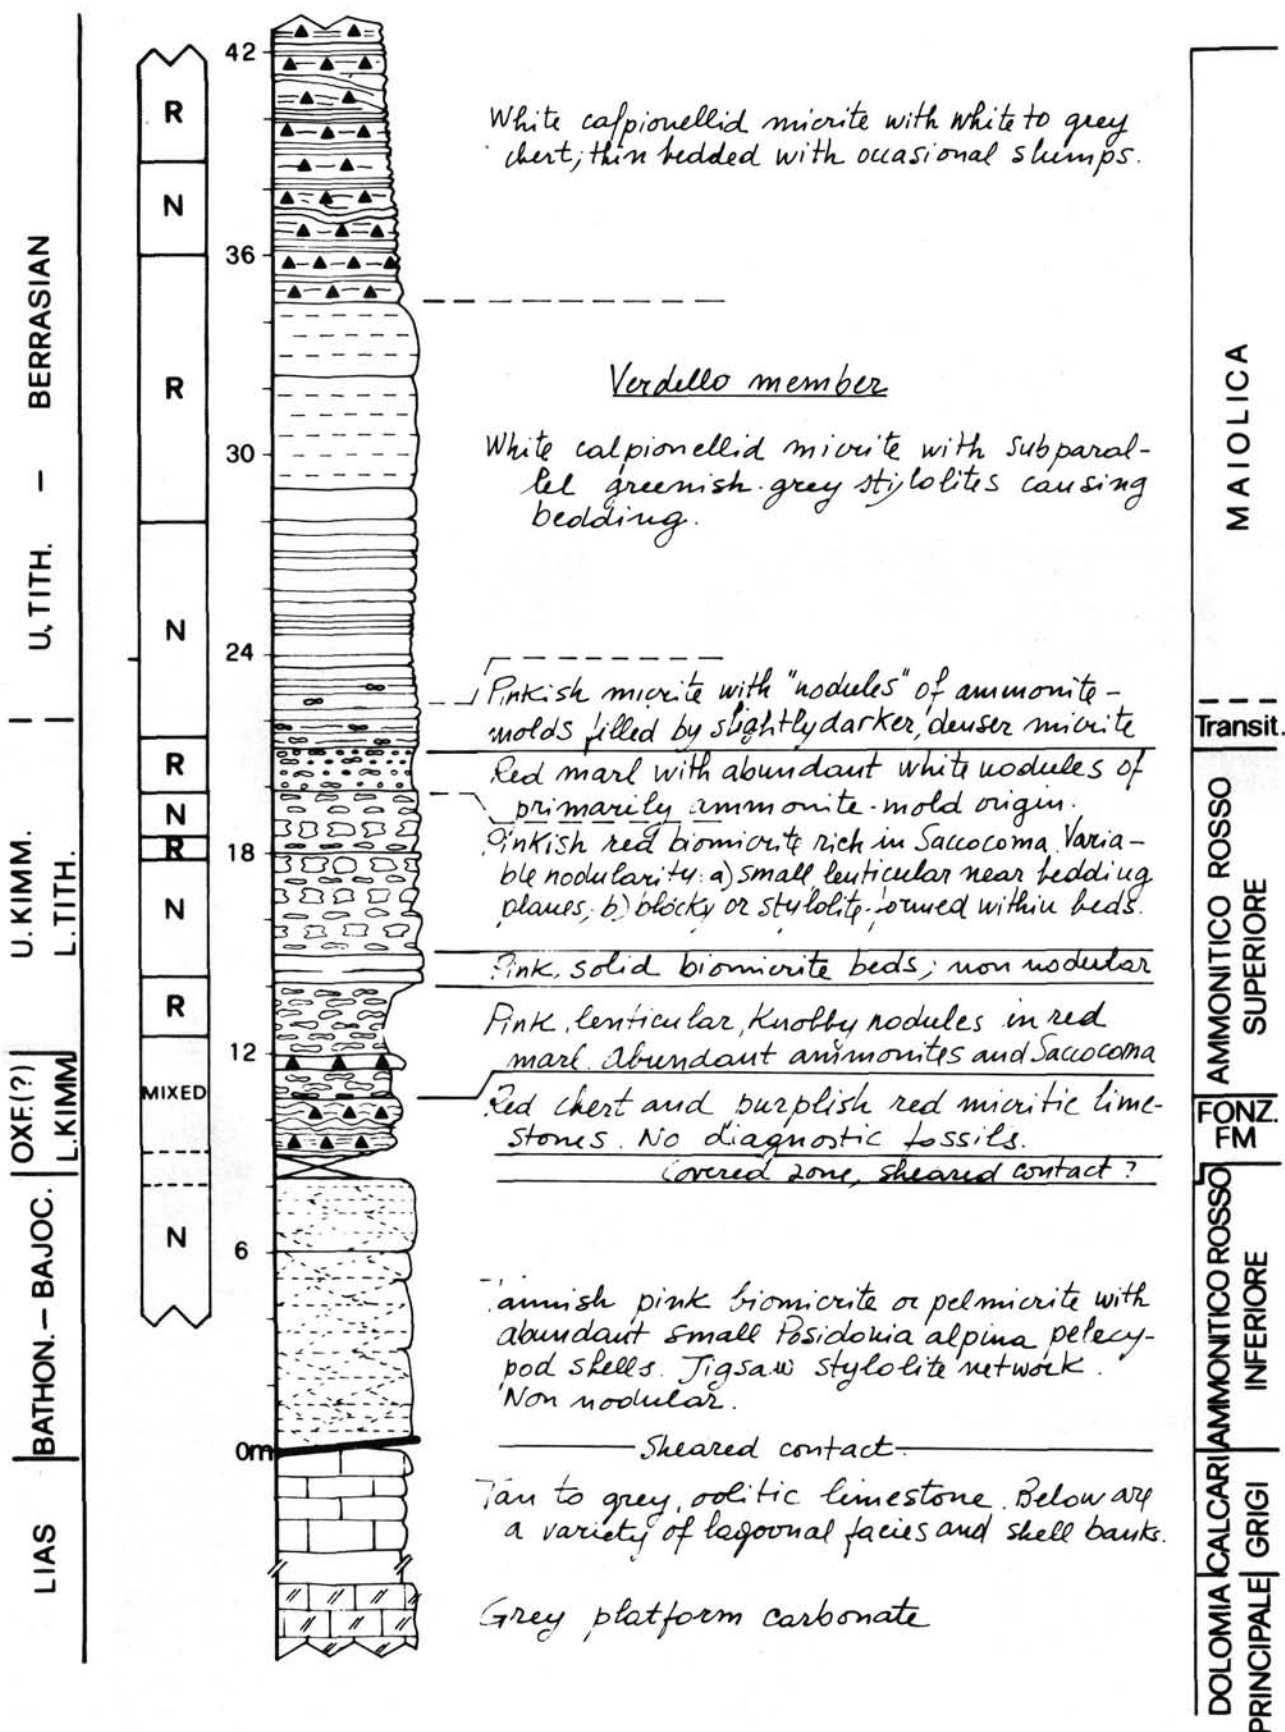 BERRASIAN
—
U. TITH.
U. KIMM.
L. TITH.
OXF.(?)
L. KIMM
BATHON.—BAJOC.
LIAS
R
N
R
N
R
N
R
N
R
MIXED
N
42
36
30
24
18
12
6
0m
White calpionellid micrite with white to grey
chert; thin bedded with occasional slumps.
Verdello member
White calpionellid micrite with subparal-
lel greenish-grey stylolites causing
bedding.
Pinkish micrite with "nodules" of ammonite-
molds filled by slightly darker, denser micrite
Red marl with abundant white nodules of
primarily ammonite-mold origin.
Pinkish red biomicrite rich in Saccocoma. Varia-
ble nodularity: a) small, lenticular near bedding
planes; b) blocky or stylolite-formed within beds.
Pink, solid biomicrite beds; non nodular
Pink, lenticular, knobby nodules in red
marl. Abundant ammonites and Saccocoma
Red chert and purplish red micritic lime-
stones. No diagnostic fossils.
Covered zone, sheared contact?
pink biomicrite or pelmicrite with
abundant small Posidonia alpina pelecy-
pod shells. Jigsaw stylolite network.
Non nodular.
Sheared contact
Tan to grey, oolitic limestone. Below are
a variety of lagoonal facies and shell banks.
Grey platform carbonate
MAIOLICA
Transit.
AMMONITICO ROSSO
SUPERIORE
FONZ.
FM
AMMONITICO ROSSO
INFERIORE
CALCARI
GRIGI
DOLOMIA
PRINCIPALE